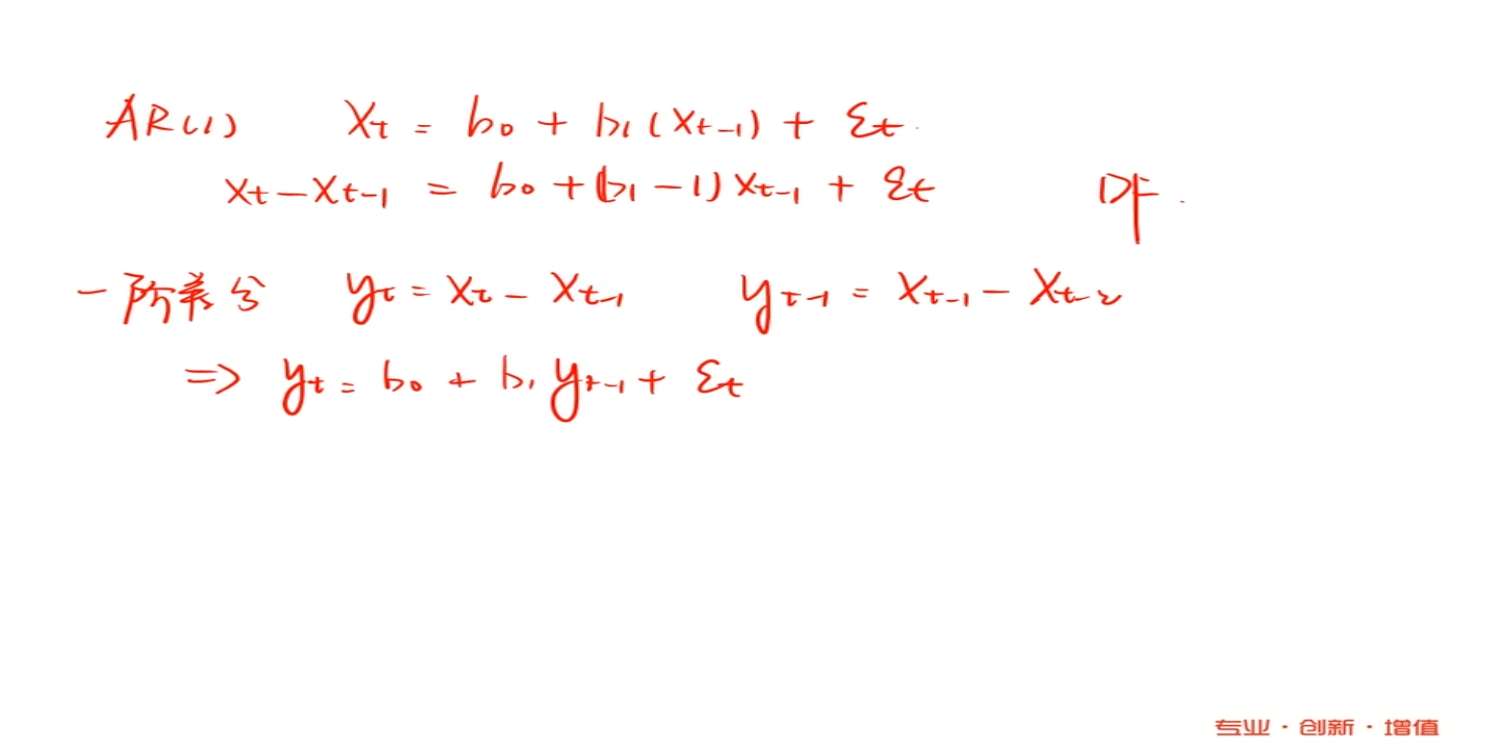 AR(1) Xt = b0 + b1(Xt-1) + εt
Xt - Xt-1 = b0 + (b1 - 1)Xt-1 + εt DF
一阶差分 yt = Xt - Xt-1 yt-1 = Xt-1 - Xt-2
=> yt = b0 + b1 yt-1 + εt
专业·创新·增值